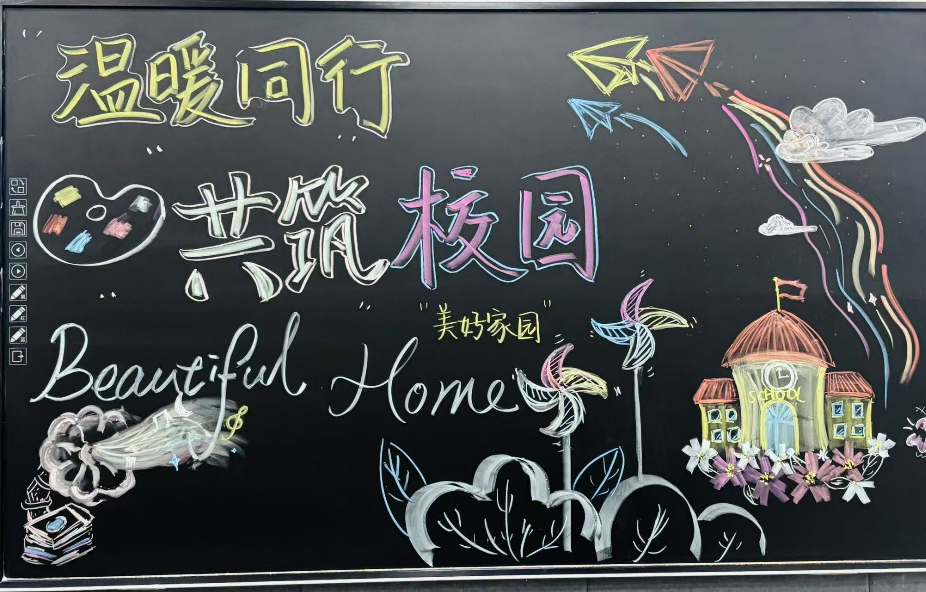 温暖同行
共筑校园
"美好家园"
Beautiful Home
SCHOOL